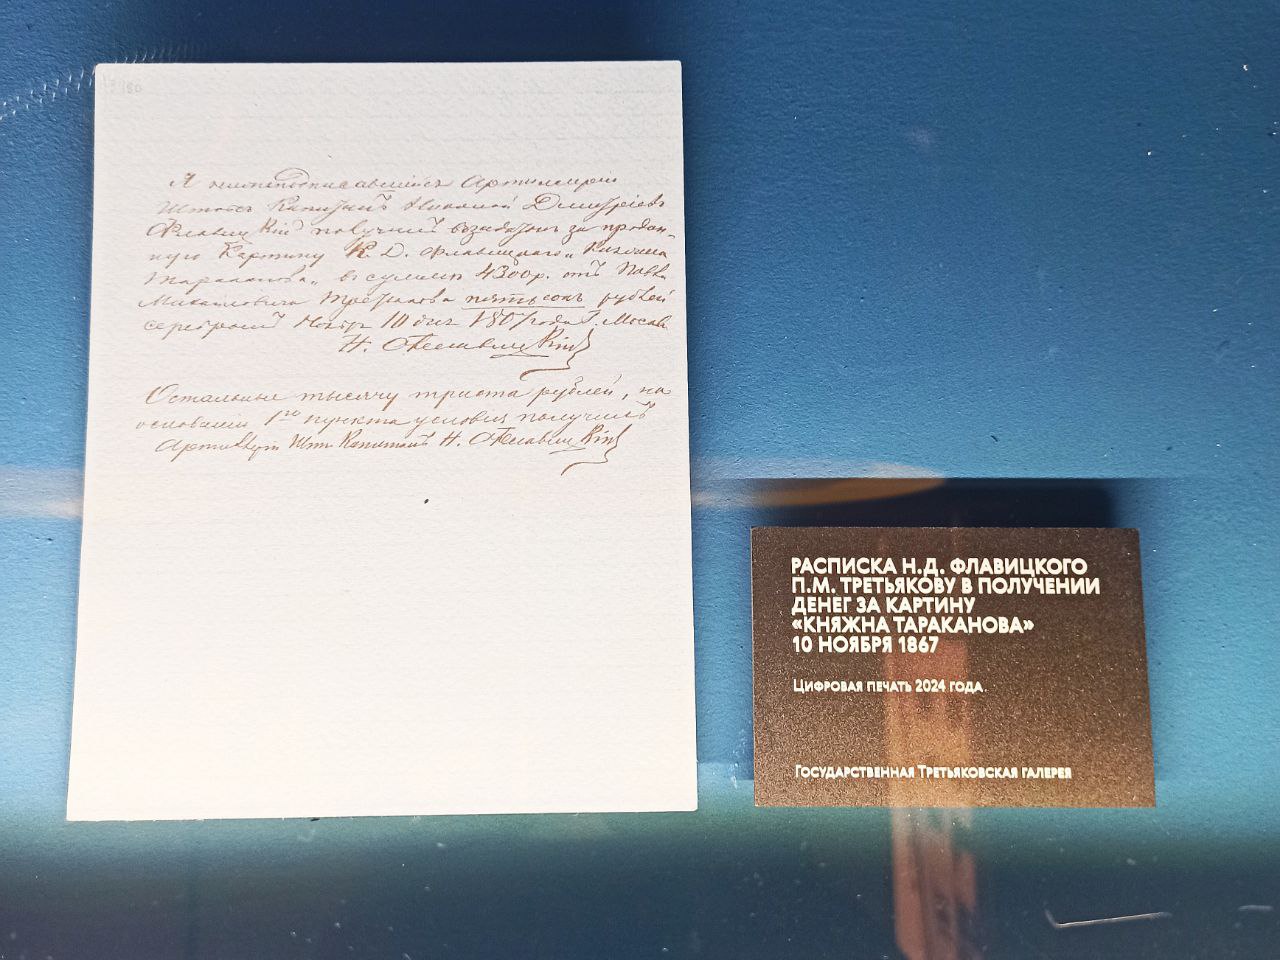 Я нижеподписавшийся Артиллеріи
Штабсъ Капитанъ Николай Дмитріевъ
Флавицкій получилъ въ задатокъ за продан-
ную Картину К. Д. Флавицкаго „Княжна
Тараканова„ въ суммѣ 4300 р. отъ Павла
Михайловича Третьякова пятьсотъ рублей
серебромъ Ноябр 10 дня 1867 года Г. Москва
Н. Флавицкій
Остальные тысячу триста рублей, на
основаніи 1го пункта условія получилъ
Артиллеріи Шт. Капитанъ Н. Флавицкій
РАСПИСКА Н.Д. ФЛАВИЦКОГО
П.М. ТРЕТЬЯКОВУ В ПОЛУЧЕНИИ
ДЕНЕГ ЗА КАРТИНУ
«КНЯЖНА ТАРАКАНОВА»
10 НОЯБРЯ 1867
ЦИФРОВАЯ ПЕЧАТЬ 2024 ГОДА
ГОСУДАРСТВЕННАЯ ТРЕТЬЯКОВСКАЯ ГАЛЕРЕЯ